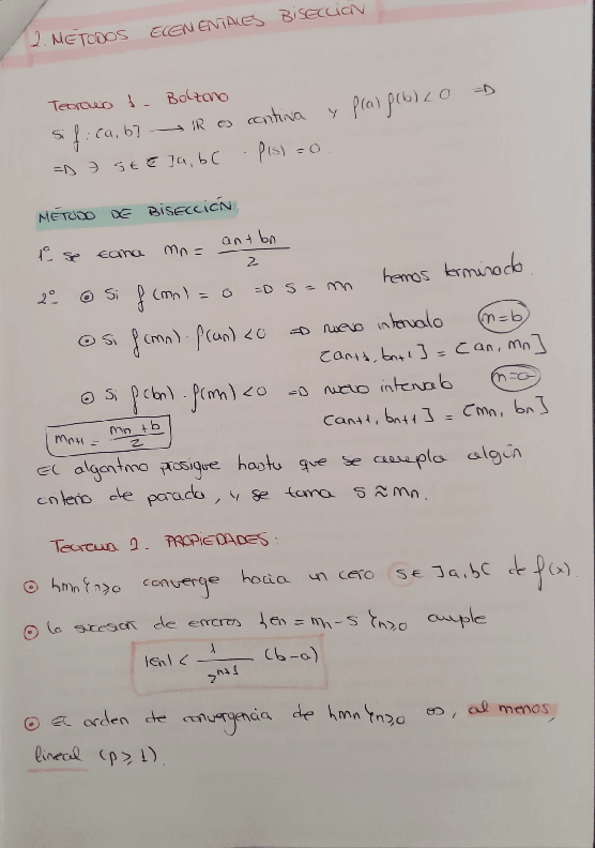 2. MÉTODOS ELEMENTALES BISECCIÓN
Teorema 1 - Bolzano
Si f: [a,b] → IR es continua y f(a) f(b) < 0 =>
=> ∃ s ∈ ]a,b[ · f(s) = 0.
MÉTODO DE BISECCIÓN
1º- se toma mn = (an + bn)/2
2º- ⊙ Si f(mn) = 0 => s = mn hemos terminado.
⊙ Si f(mn) · f(an) < 0 => nuevo intervalo (m=b)
[an+1, bn+1] = [an, mn]
⊙ Si f(bn) · f(mn) < 0 => nuevo intervalo (m=a)
[an+1, bn+1] = [mn, bn]
mn+1 = (mn + b)/2
El algoritmo prosigue hasta que se cumpla algún
criterio de parada, y se toma s ≈ mn.
Teorema 2. PROPIEDADES:
⊙ {mn}n≥0 converge hacia un cero s ∈ ]a,b[ de f(x).
⊙ la sucesión de errores {en = mn - s}n≥0 cumple
|en| < 1/2^(n+1) (b-a)
⊙ El orden de convergencia de {mn}n≥0 es, al menos,
lineal (p ≥ 1).